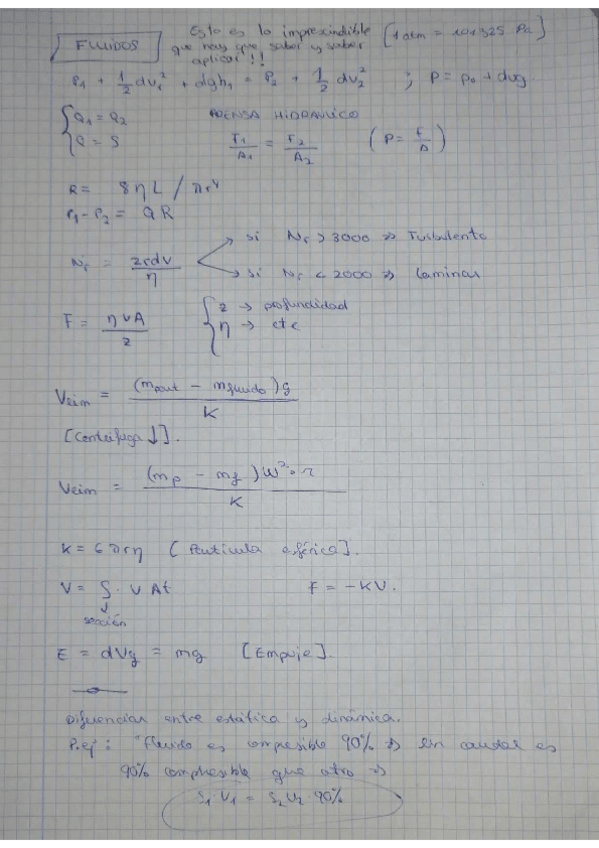 FLUIDOS
Esto es lo imprescindible
que hay que saber y saber
aplicar!!
[1 atm = 101325 Pa]
P₁ + 1/2 dv₁² + dgh₁ = P₂ + 1/2 dv₂² ; P = P₀ + dvg
{ Q₁ = Q₂
Q = S
PRENSA HIDRAULICO
F₁/A₁ = F₂/A₂ (P = F/A)
R = 8ηL / πr⁴
P₁ - P₂ = QR
Nr = 2rdv/η
si Nr > 3000 => Turbulento
si Nr < 2000 => Laminar
F = ηvA/z
{ z → profundidad
η → cte
Vsim = (mpart - mfluido)g / K
[Centrífuga ↓].
Vsim = (mp - mf)ω²·r / K
K = 6πrη [Partícula esférica].
V = S · v Δt
F = -KV.
↓
sección
E = dVg = mg [Empuje].
Diferencias entre estática y dinámica.
P.ej: "Fluido es compresible 90% => Un caudal es
90% compresible que otro =>
S₁·V₁ = S₂V₂·90%